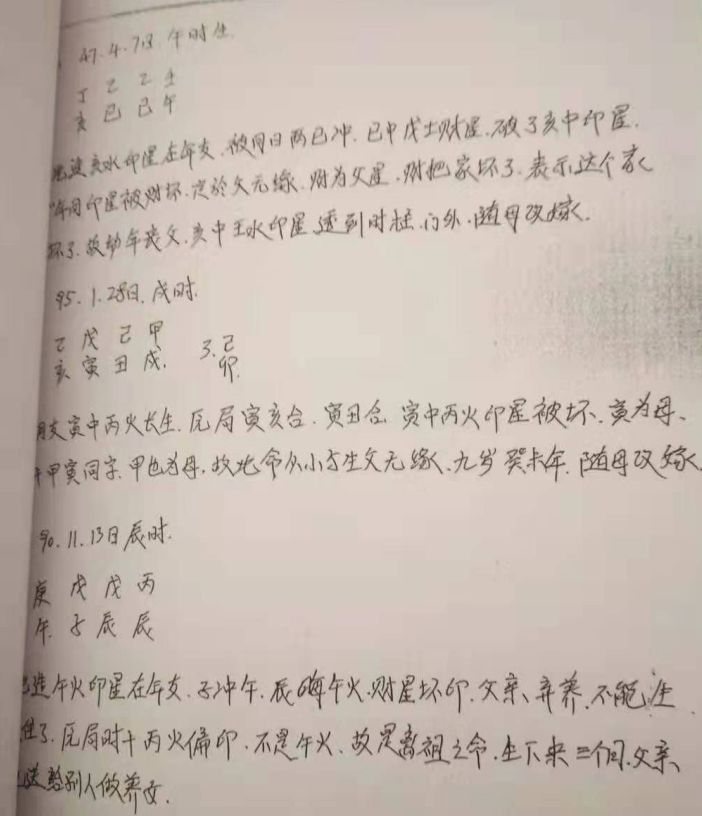 47.4.7日.午时生.
丁 乙 乙 壬
亥 巳 巳 午
此造亥水印星在年支.被月日两巳冲.巳中戊土财星.破了亥中印星.
年月印星被财坏.定於父无缘.财为父星.财把家坏了.表示这个家
坏了.故幼年丧父.亥中壬水印星透到时柱.门外.随母改嫁.
95.1.28日.戌时.
乙 戊 己 甲
亥 寅 丑 戌. 3.己
卯.
月支寅中丙火长生.原局寅亥合.寅丑合.寅中丙火印星被坏.寅为母、
干甲寅同宗.甲也为母.故此命从小与生父无缘.九岁癸未年.随母改嫁
90.11.13日辰时.
庚 戊 戊 丙
午. 子 辰 辰
造午火印星在年支.子冲午.辰晦午火.财星坏印.父亲、弃养.不能生
住了.原局时干丙火偏印.不是午火.故是离祖之命.生下来三个月.父亲、
送给别人做养女.